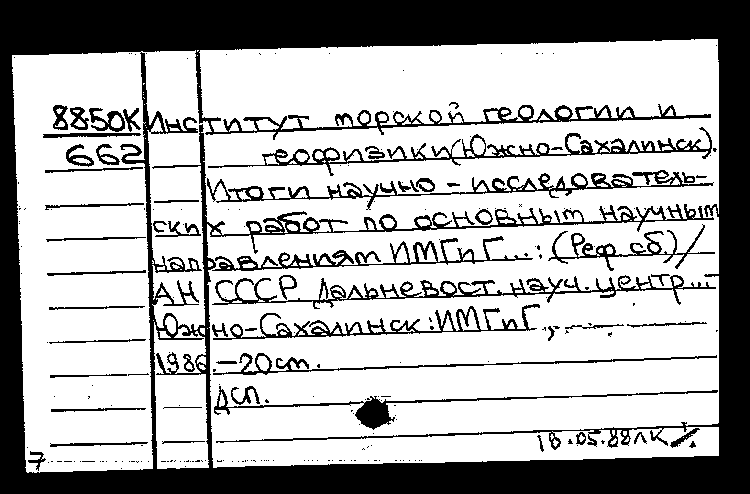 8850К Институт морской геологии и
662 геофизики (Южно-Сахалинск).
Итоги научно-исследователь-
ских работ по основным научным
направлениям ИМГиГ...: (Реф. сб.)/
АН СССР Дальневост. науч. центр...-
Южно-Сахалинск: ИМГиГ,
1986.-20см.
ДСП.
18.05.88 ЛК
7